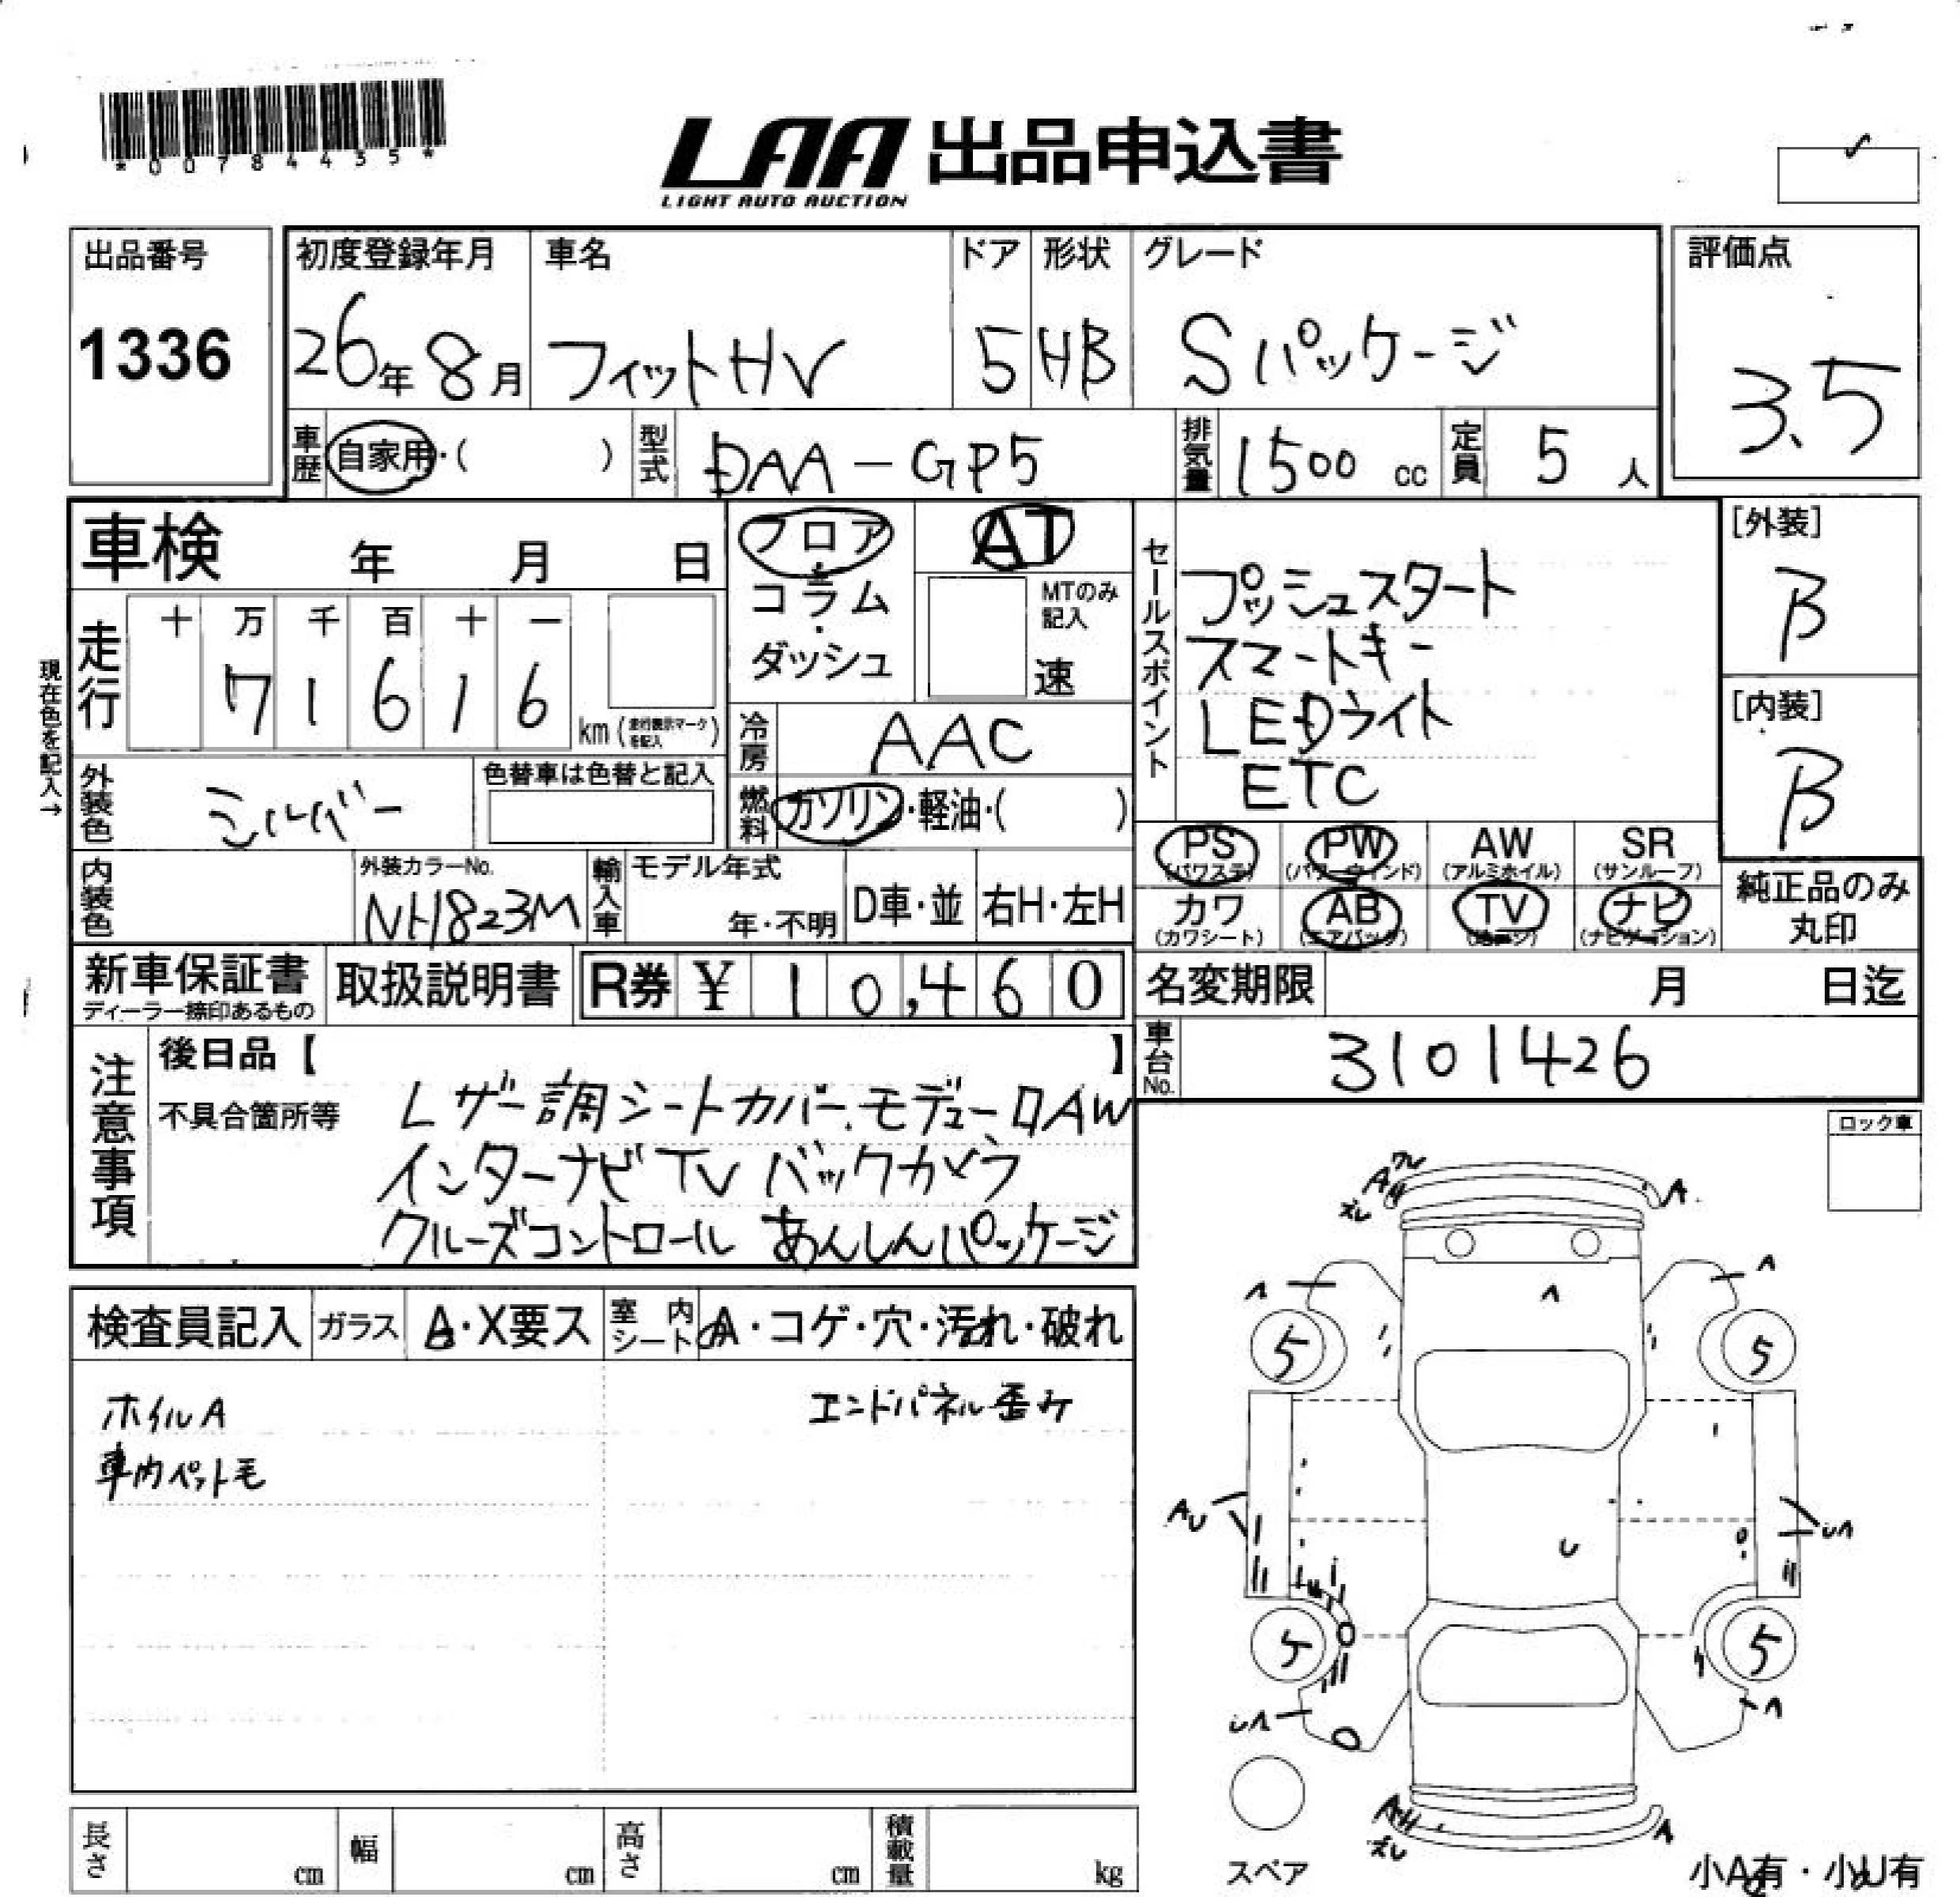 *00784435*
LAA 出品申込書
LIGHT AUTO AUCTION
出品番号
1336
初度登録年月
26年 8月
車名
フィットHV
ドア
5
形状
HB
グレード
Sパッケージ
評価点
3.5
車歴 自家用・( )
型式 DAA-GP5
排気量 1500 cc
定員 5 人
車検 年 月 日
フロア・コラム・ダッシュ
AT
MTのみ記入
速
セールスポイント
プッシュスタート
スマートキー
LEDライト
ETC
[外装]
B
[内装]
B
現在色を記入→
走行 十 万 千 百 十 一
7 1 6 1 6 km (走行表示マークを記入)
冷房 AAC
外装色 シルバー
色替車は色替と記入
燃料 ガソリン・軽油・( )
PS (パワステ) PW (パワーウィンド) AW (アルミホイル) SR (サンルーフ)
カワ (カワシート) AB (エアバック) TV (地デジ) ナビ (ナビゲーション)
純正品のみ
丸印
内装色
外装カラーNo.
NH823M
輸入車
モデル年式
年・不明
D車・並
右H・左H
新車保証書
ディーラー捺印あるもの
取扱説明書
R券 ¥ 10,460
名変期限 月 日迄
車台No. 3101426
注意事項
後日品【 】
不具合箇所等
レザー調シートカバー.モデューロAW
インターナビTV バックカメラ
クルーズコントロール あんしんパッケージ
ロック車
検査員記入 ガラス A・X要ス 室内シート A・コゲ・穴・汚れ・破れ
ホイルA
エンドパネル歪み
車内ペット毛
A
A
5
5
AU
U
5
5
AH
A
スペア
小A有・小U有
長さ cm 幅 cm 高さ cm 積載量 kg